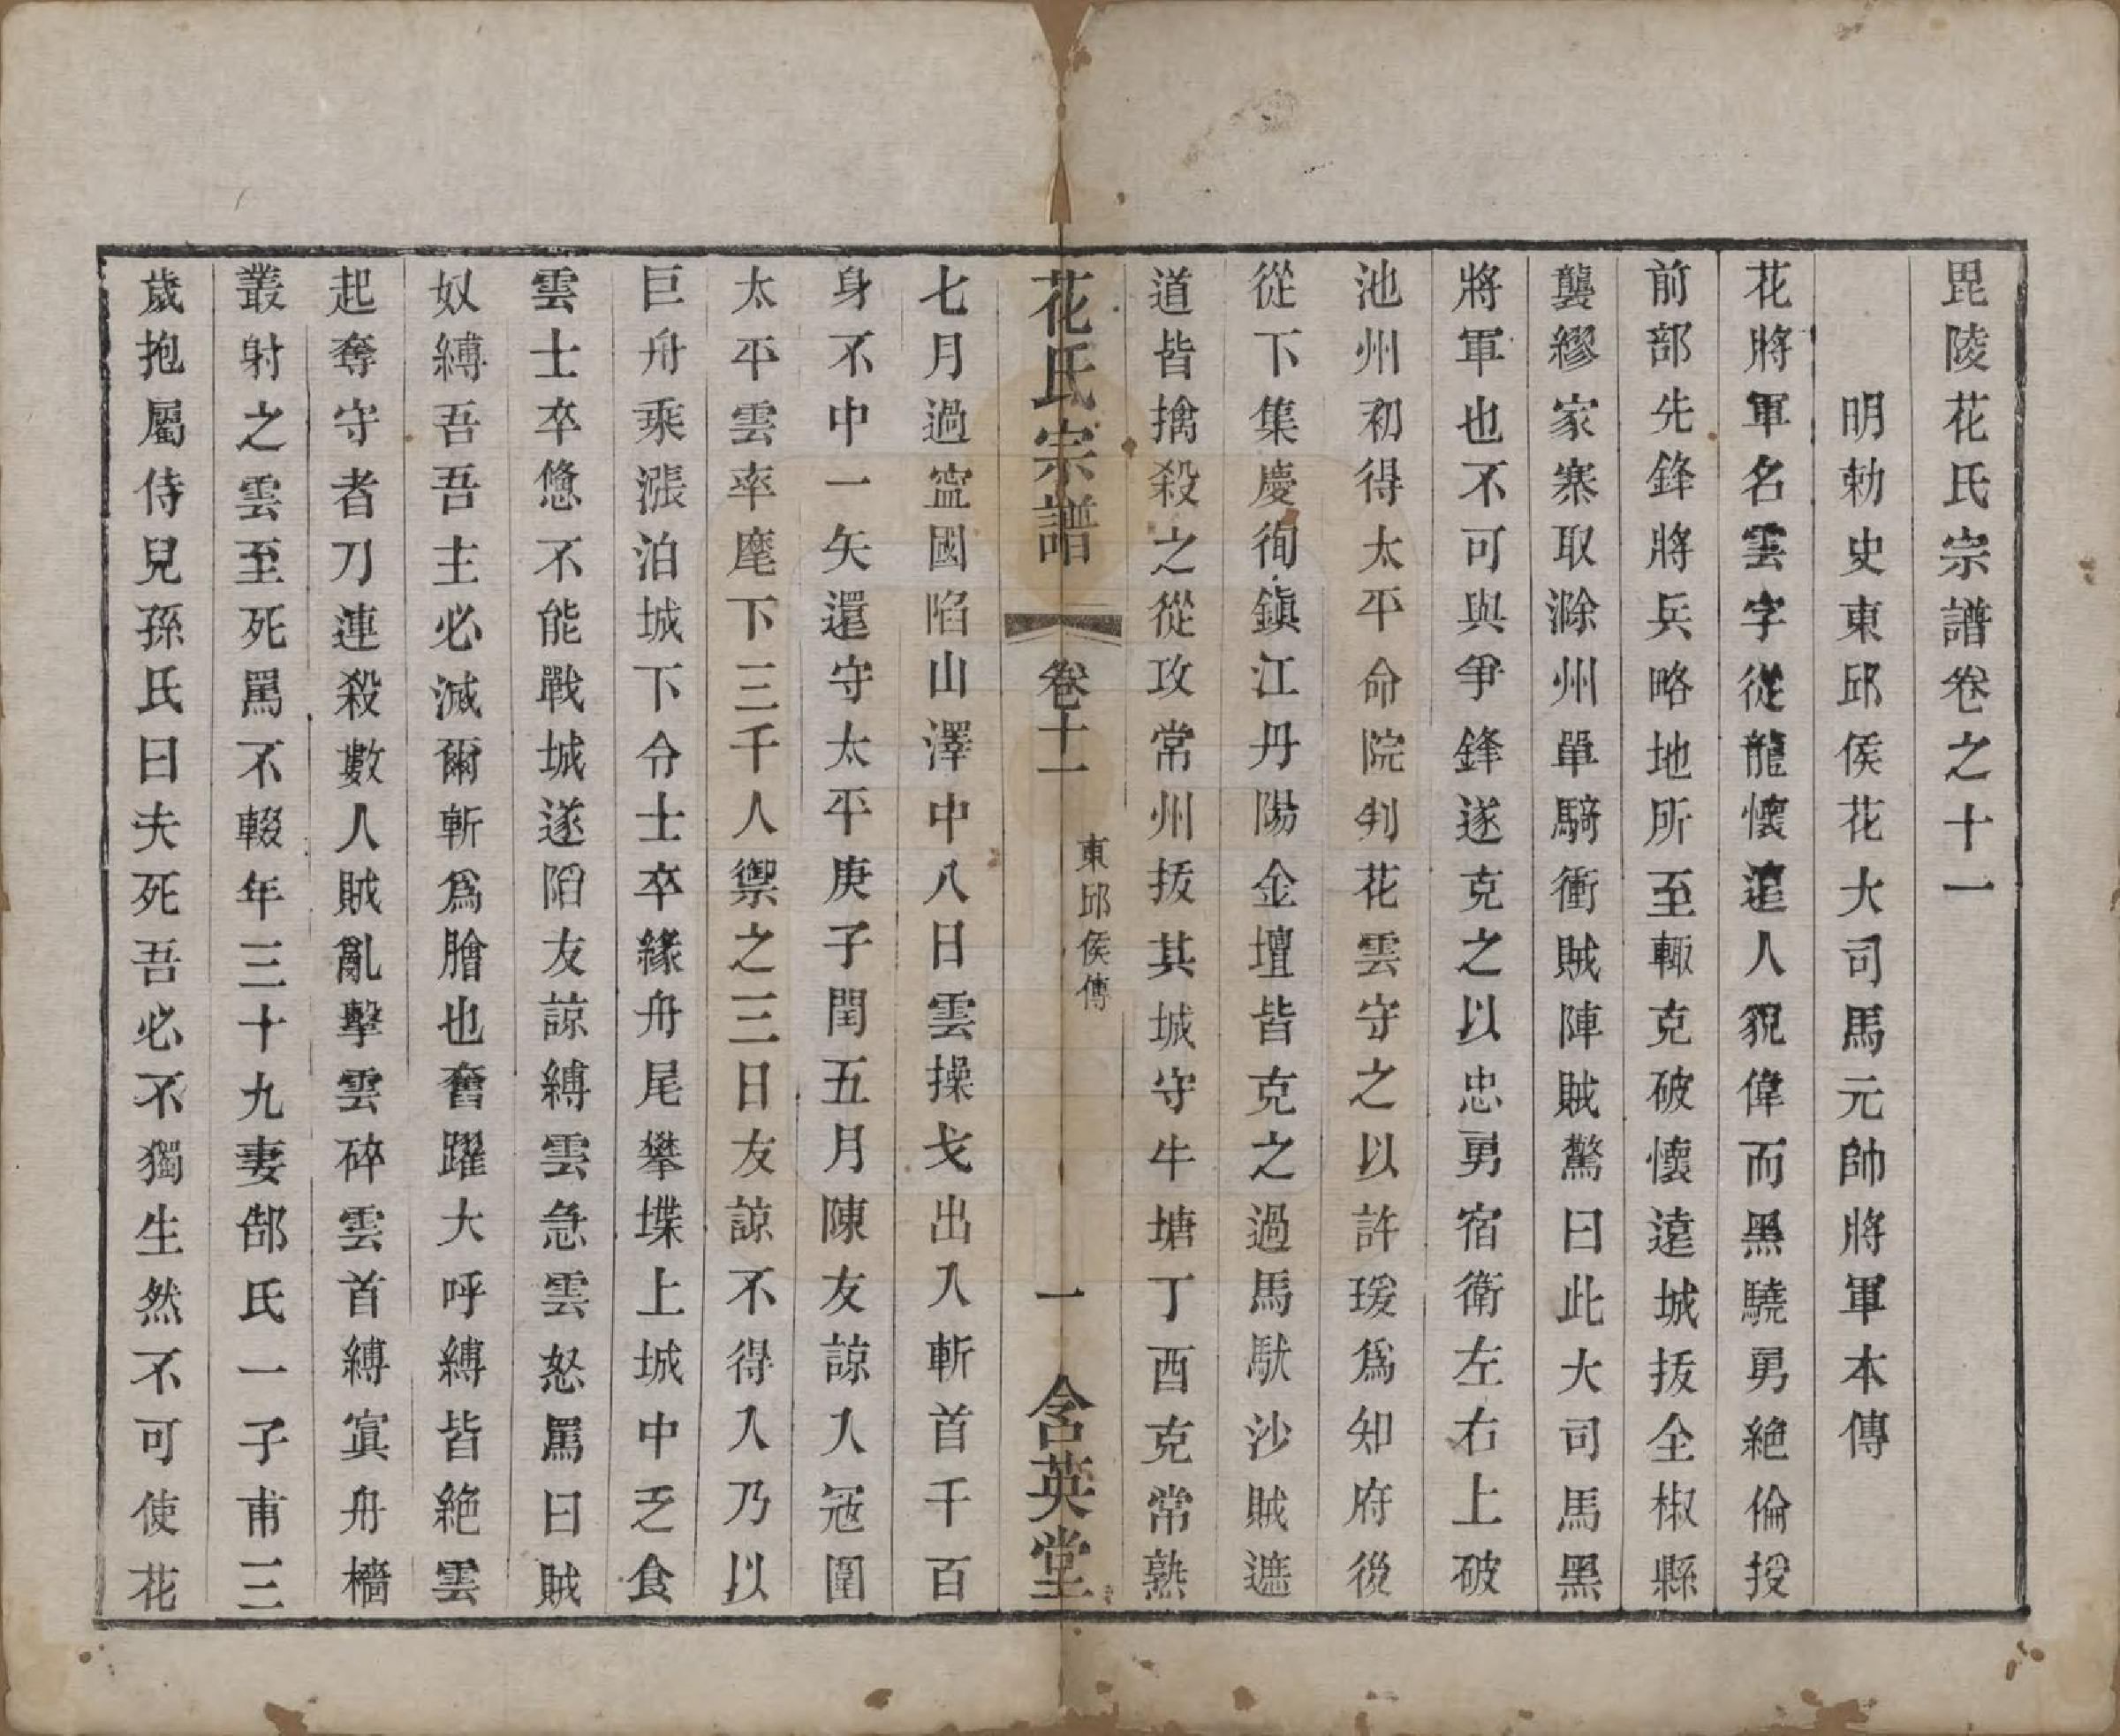 毘陵花氏宗譜卷之十一
明勅史東邱侯花大司馬元帥將軍本傳
花將軍名雲字從龍懷遠人貌偉而黑驍勇絕倫授
前部先鋒將兵略地所至輒克破懷遠城拔全椒縣
襲繆家寨取滁州單騎衝賊陣賊驚曰此大司馬黑
將軍也不可與爭鋒遂克之以忠勇宿衛左右上破
池州初得太平命院判花雲守之以許瑗為知府後
從下集慶徇鎭江丹陽金壇皆克之過馬馱沙賊遮
道皆擒殺之從攻常州拔其城守牛塘丁酉克常熟
花氏宗譜 卷十一 東邱侯傳 一 含英堂
七月過寍國陷山澤中八日雲操戈出入斬首千百
身不中一矢還守太平庚子閏五月陳友諒入寇圍
太平雲率麾下三千人禦之三日友諒不得入乃以
巨舟乘漲泊城下令士卒緣舟尾攀堞上城中乏食
雲士卒憊不能戰城遂陷友諒縛雲急雲怒罵曰賊
奴縛吾吾主必滅爾斬爲膾也奮躍大呼縛皆絕雲
起奪守者刀連殺數人賊亂擊雲碎雲首縛寘舟檣
叢射之雲至死罵不輟年三十九妻郜氏一子甫三
歲抱屬侍兒孫氏曰夫死吾必不獨生然不可使花